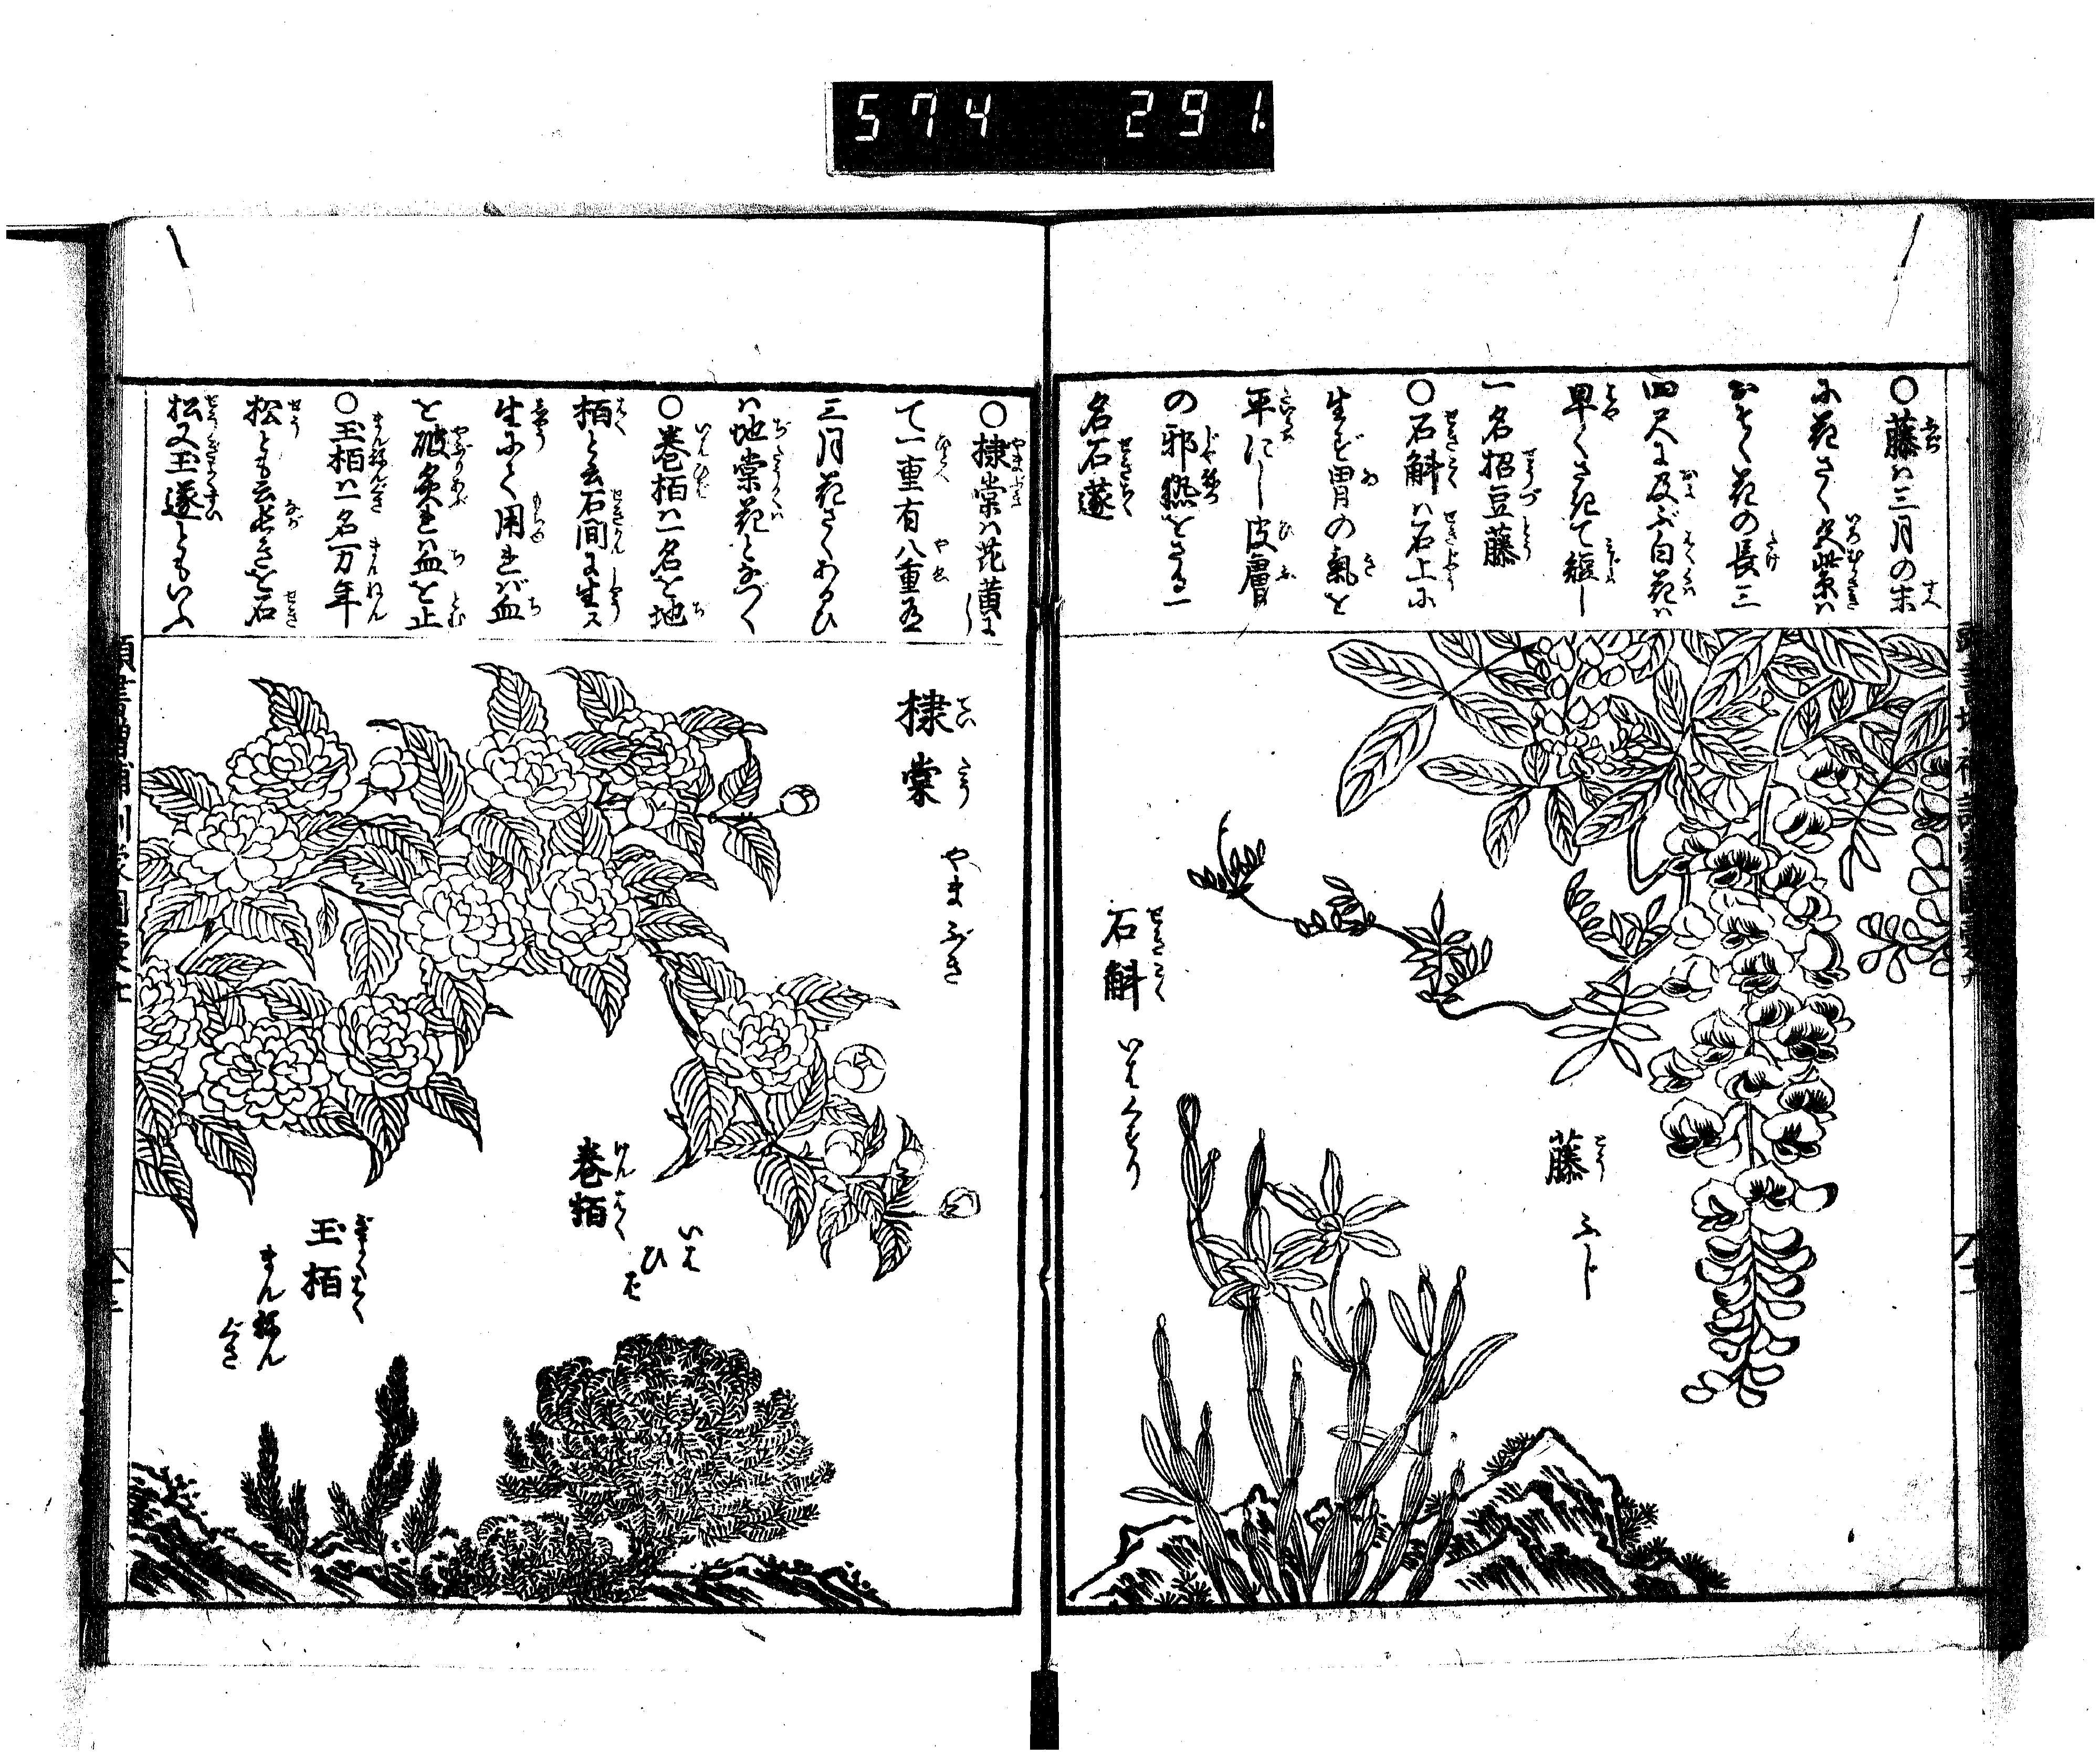 574 291.
○藤ハ三月の末
に花さく又紫ハ
おそく花の長三
四尺に及ぶ白花ハ
早くさきて短し
一名招豆藤
○石斛ハ石上に
生ず胃の氣を
平にし皮膚
の邪熱をさる一
名石蓫
藤 とう ふじ
石斛 せきこく いはくすり
○棣棠ハ花黄に
て一重有八重有
三月花さくあるひ
ハ地棠花となづく
○巻栢ハ一名を地
栢と云石間に生ス
生にて用れバ血
を破炙れハ血を止
○玉栢ハ一名万年
松とも云長きを石
松又玉遂ともいふ
棣棠 ていとう やまぶき
巻栢 けんはく いはひば
玉栢 ぎよくはく まんねんぐさ